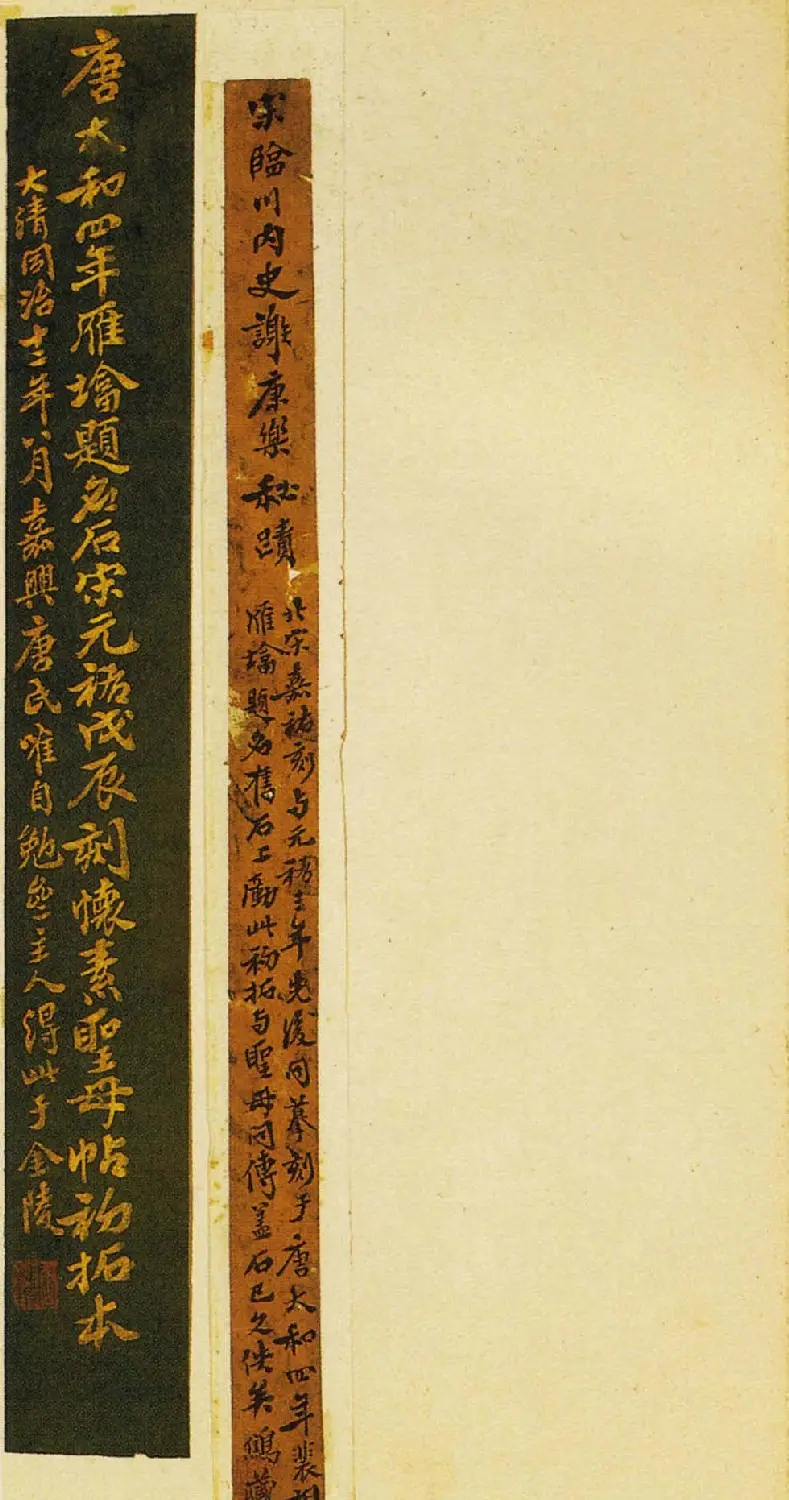 宋臨川内史謝康樂秘蹟
北宋嘉祐刻与元祐三年先後同摹刻于唐大和四年裴
雁墖題名舊石上此初拓与聖母同傳蓋石已久佚矣
唐大和四年雁墖題名石宋元祐戊辰刻懷素聖母帖初拓本
大清同治十三年八月嘉興唐氏唯自勉盦主人得此于金陵